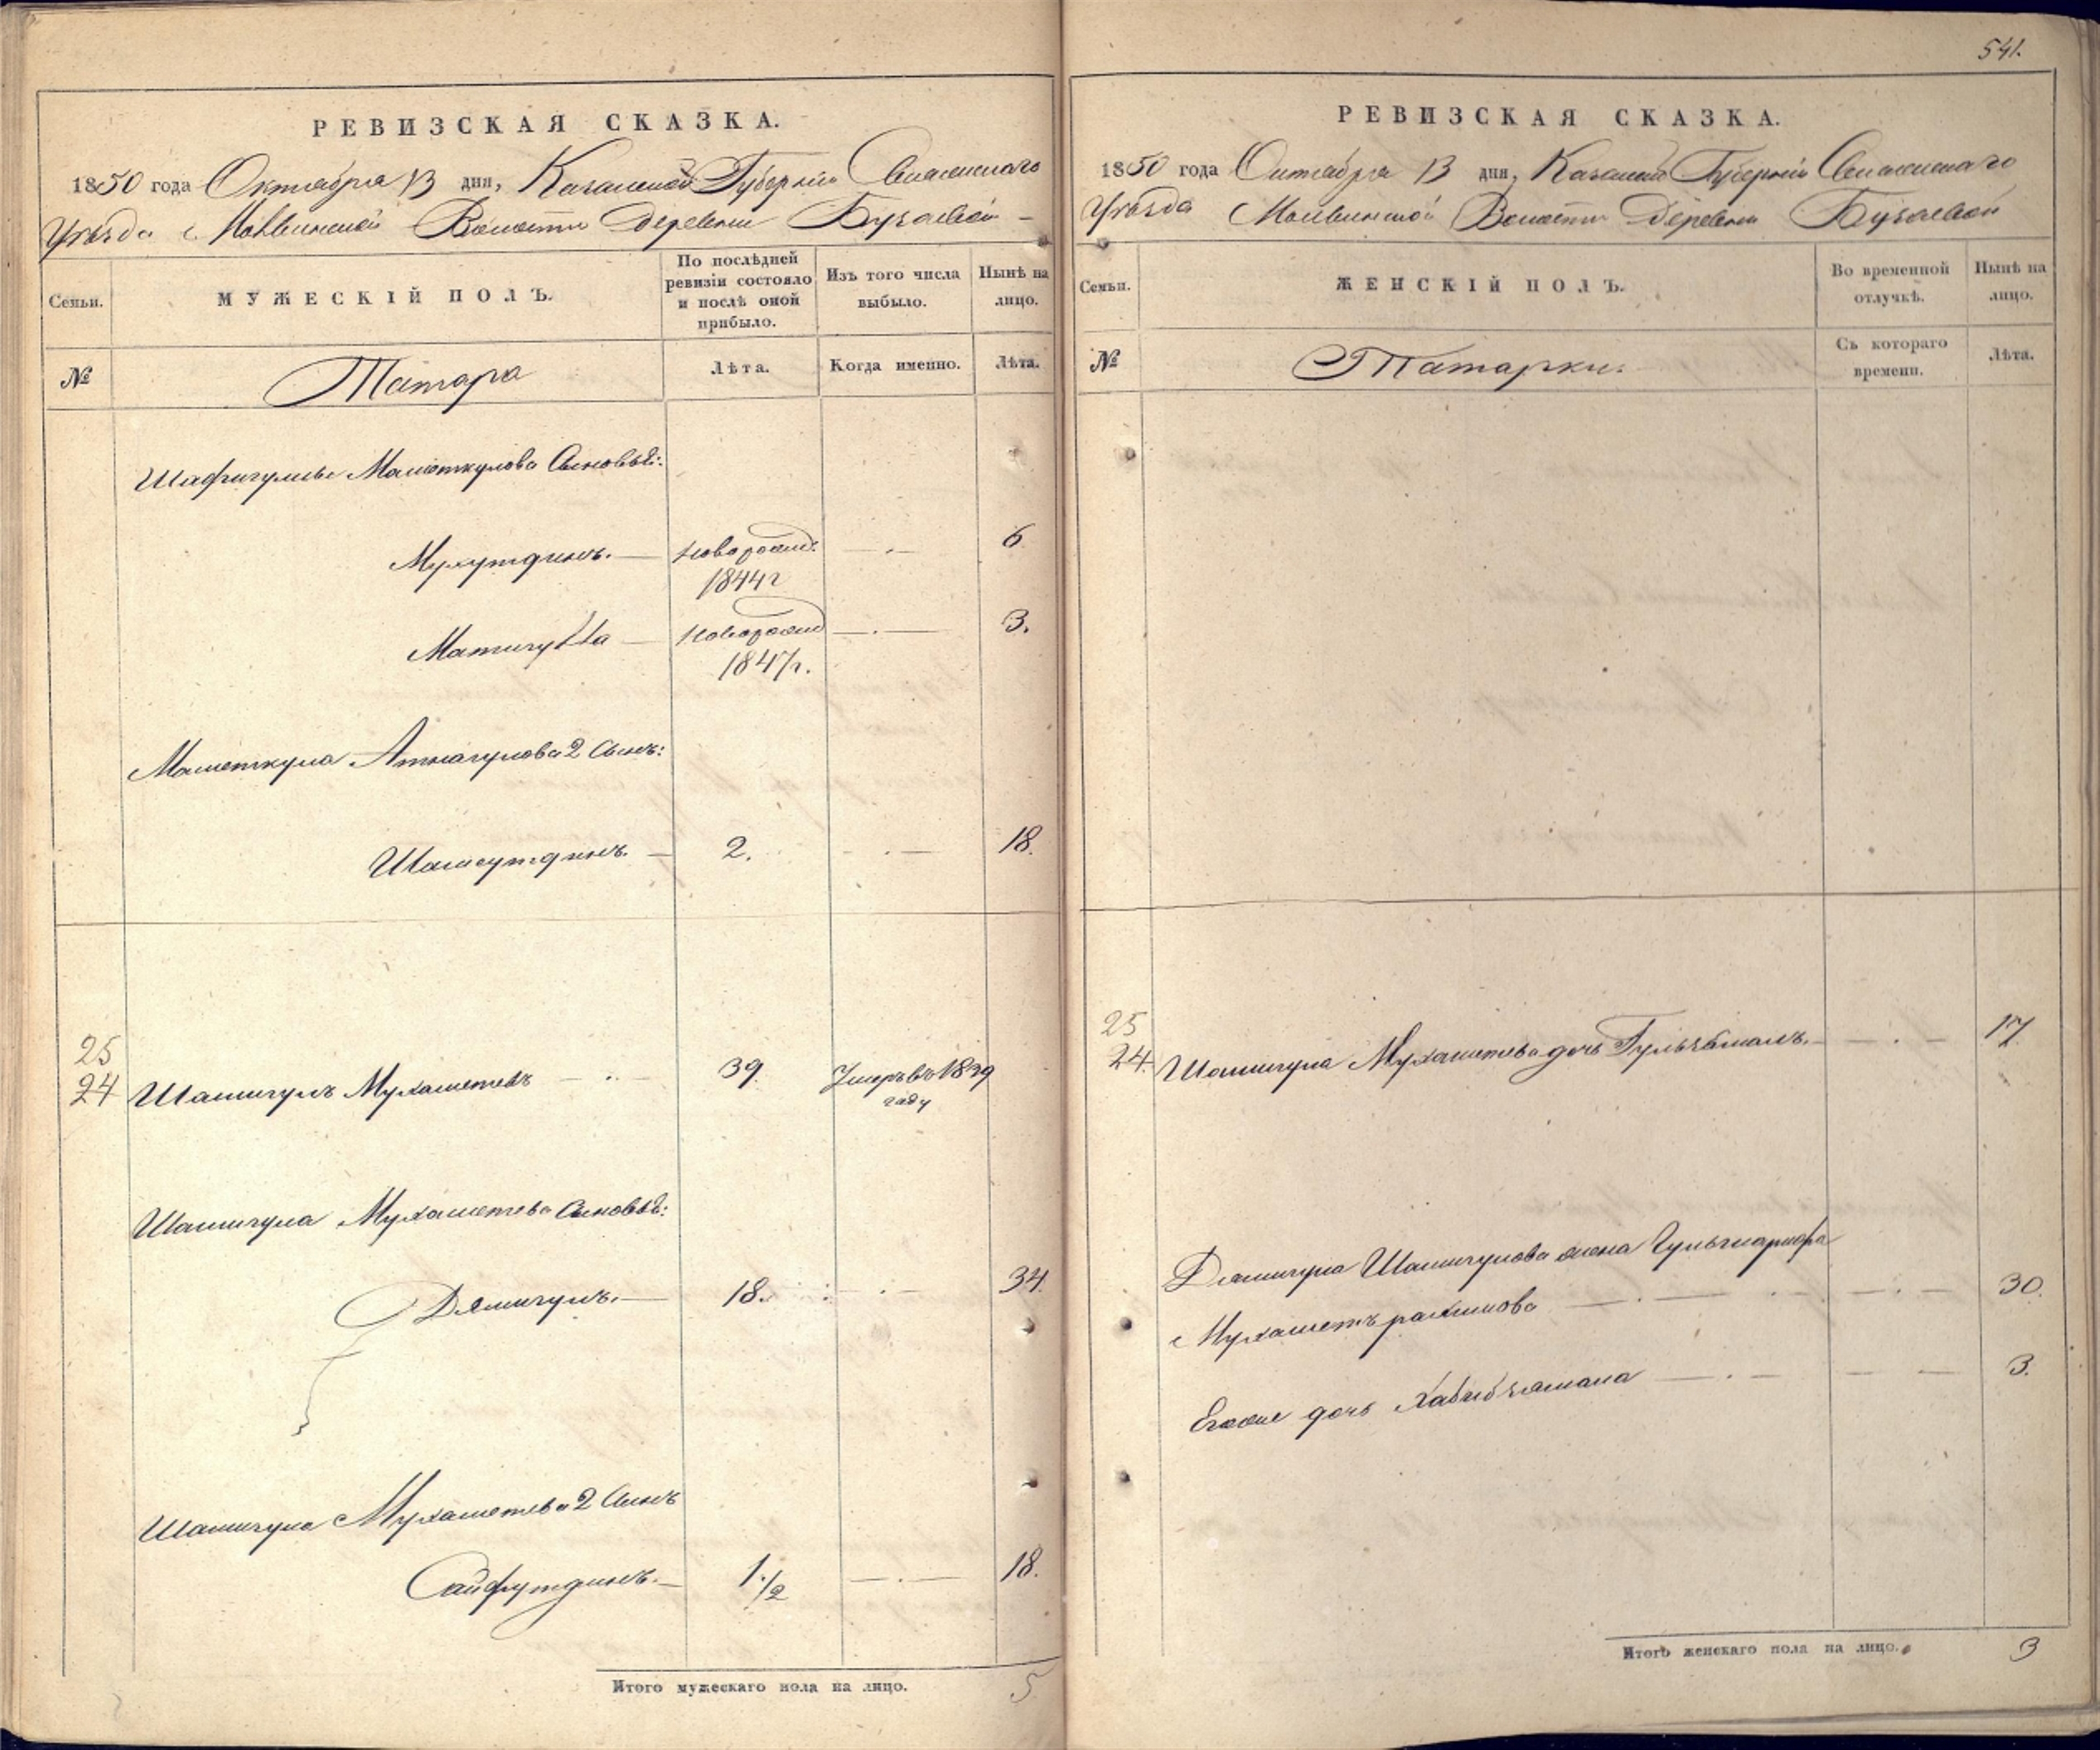 РЕВИЗСКАЯ СКАЗКА.
1850 года Октября 13 дня, Казанской Губернии Свіяжскаго
Уѣзда Молвинской Волости Деревни Бузаевой
Семьи.
МУЖЕСКІЙ ПОЛЪ.
По послѣдней
ревизіи состояло
и послѣ оной
прибыло.
Изъ того числа
выбыло.
Нынѣ на
лицо.
№
Татара
Лѣта.
Когда именно.
Лѣта.
Маметкулова Сыновья:
новорожд. 6
1844г
новорожд 3.
1847г.
Маметкула Атнагулова 2 Сынъ:
Шамсутдинъ. 2. 18.
25
24 Шамигулъ Мухаметевъ 39 Умеръ въ 1839
году
Шамигула Мухаметева Сыновья:
Дямигулъ. 18. 34.
Шамигула Мухаметева 2 Сынъ
Сайфутдинъ. 1 1/2 18.
Итого мужескаго пола на лицо. 5
541.
РЕВИЗСКАЯ СКАЗКА.
1850 года Октября 13 дня, Казанской Губерніи Свіяжскаго
Уѣзда Молвинской Волости Деревни Бузаевой
Семьи.
ЖЕНСКІЙ ПОЛЪ.
Во временной
отлучкѣ.
Нынѣ на
лицо.
№
Татарки.
Съ котораго
времени.
Лѣта.
25
24. Шамигула Мухаметева дочь Гульзямалъ. 17
Дямигула Шамигулова жена
Мухаметъ рахимова 30.
Егоже дочь Хабибзямала 3.
Итого женскаго пола на лицо. 3